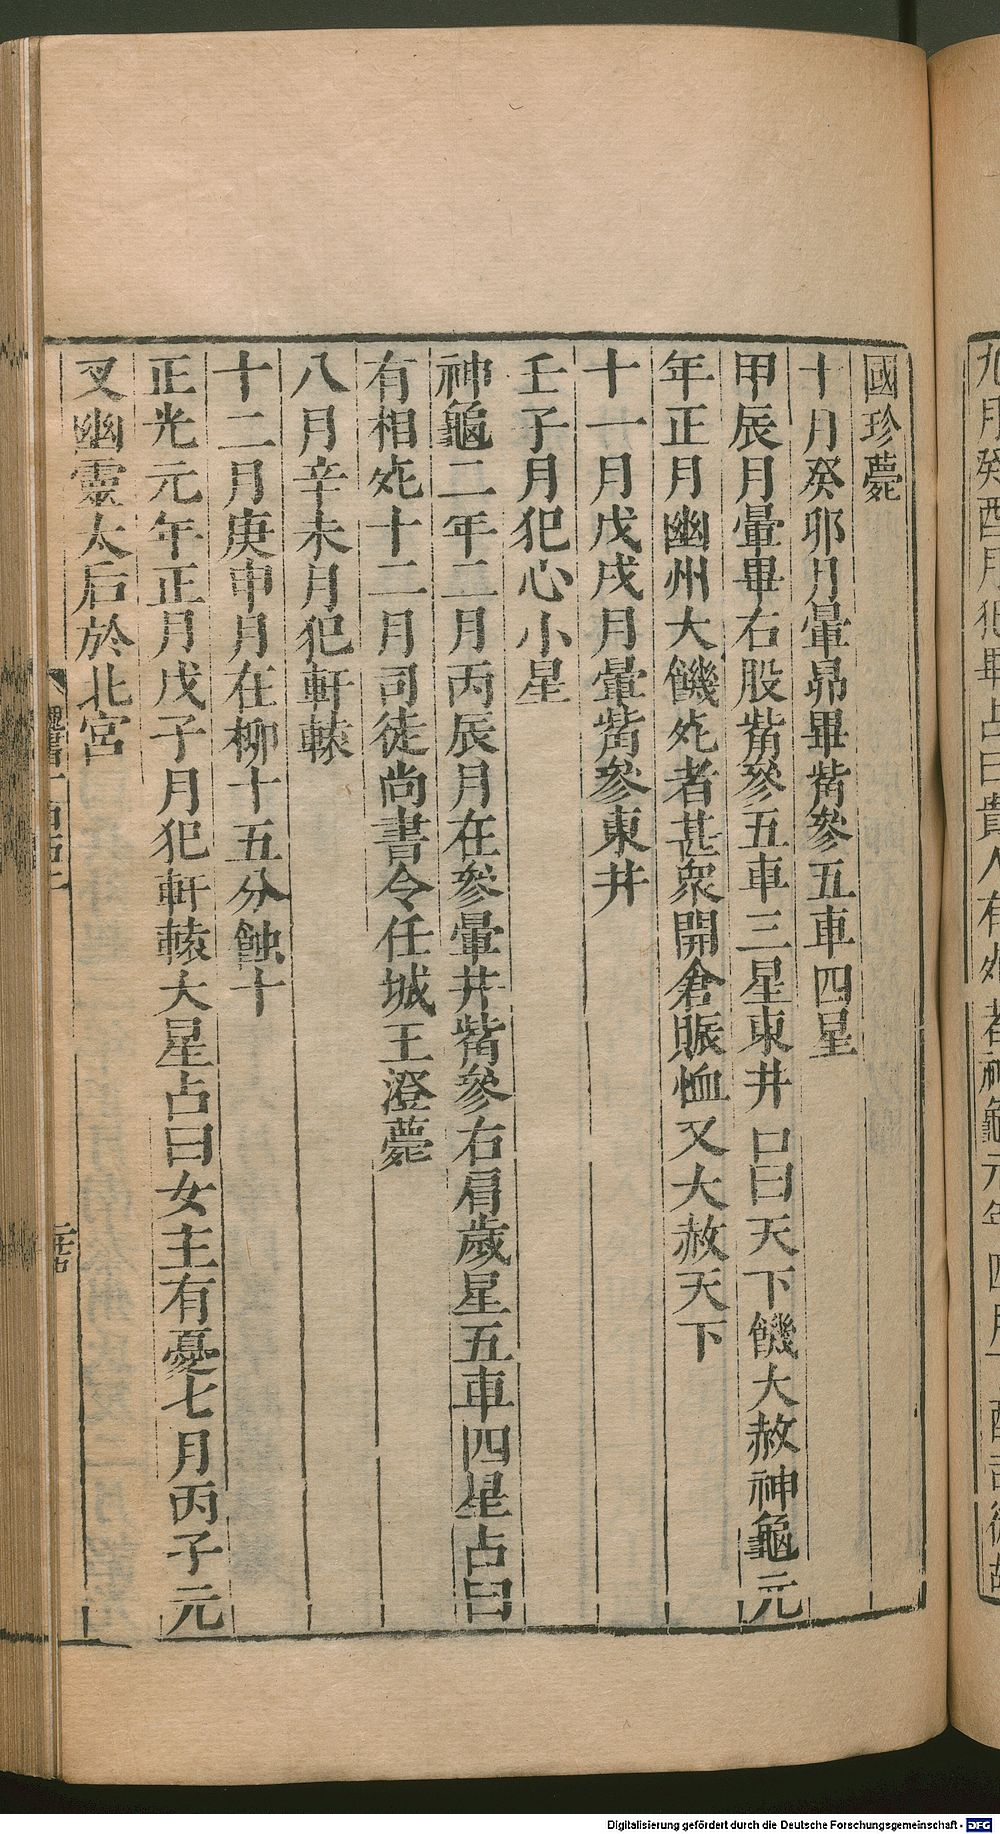 國珍薨
十月癸卯月暈昴畢觜參五車四星
甲辰月暈畢右股觜參五車三星東井口曰天下饑大赦神龜元
年正月幽州大饑死者甚衆開倉賑恤又大赦天下
十一月戊戌月暈觜參東井
壬子月犯心小星
神龜二年二月丙辰月在參暈井觜參右肩歲星五車四星占曰
有相死十二月司徒尚書令任城王澄薨
八月辛未月犯軒轅
十二月庚申月在柳十五分蝕十
正光元年正月戊子月犯軒轅大星占曰女主有憂七月丙子元
叉幽靈太后於北宮
九月癸酉月犯畢占曰貴人有死者神龜元年四月丁酉司徒胡
Digitalisierung gefördert durch die Deutsche Forschungsgemeinschaft - DFG